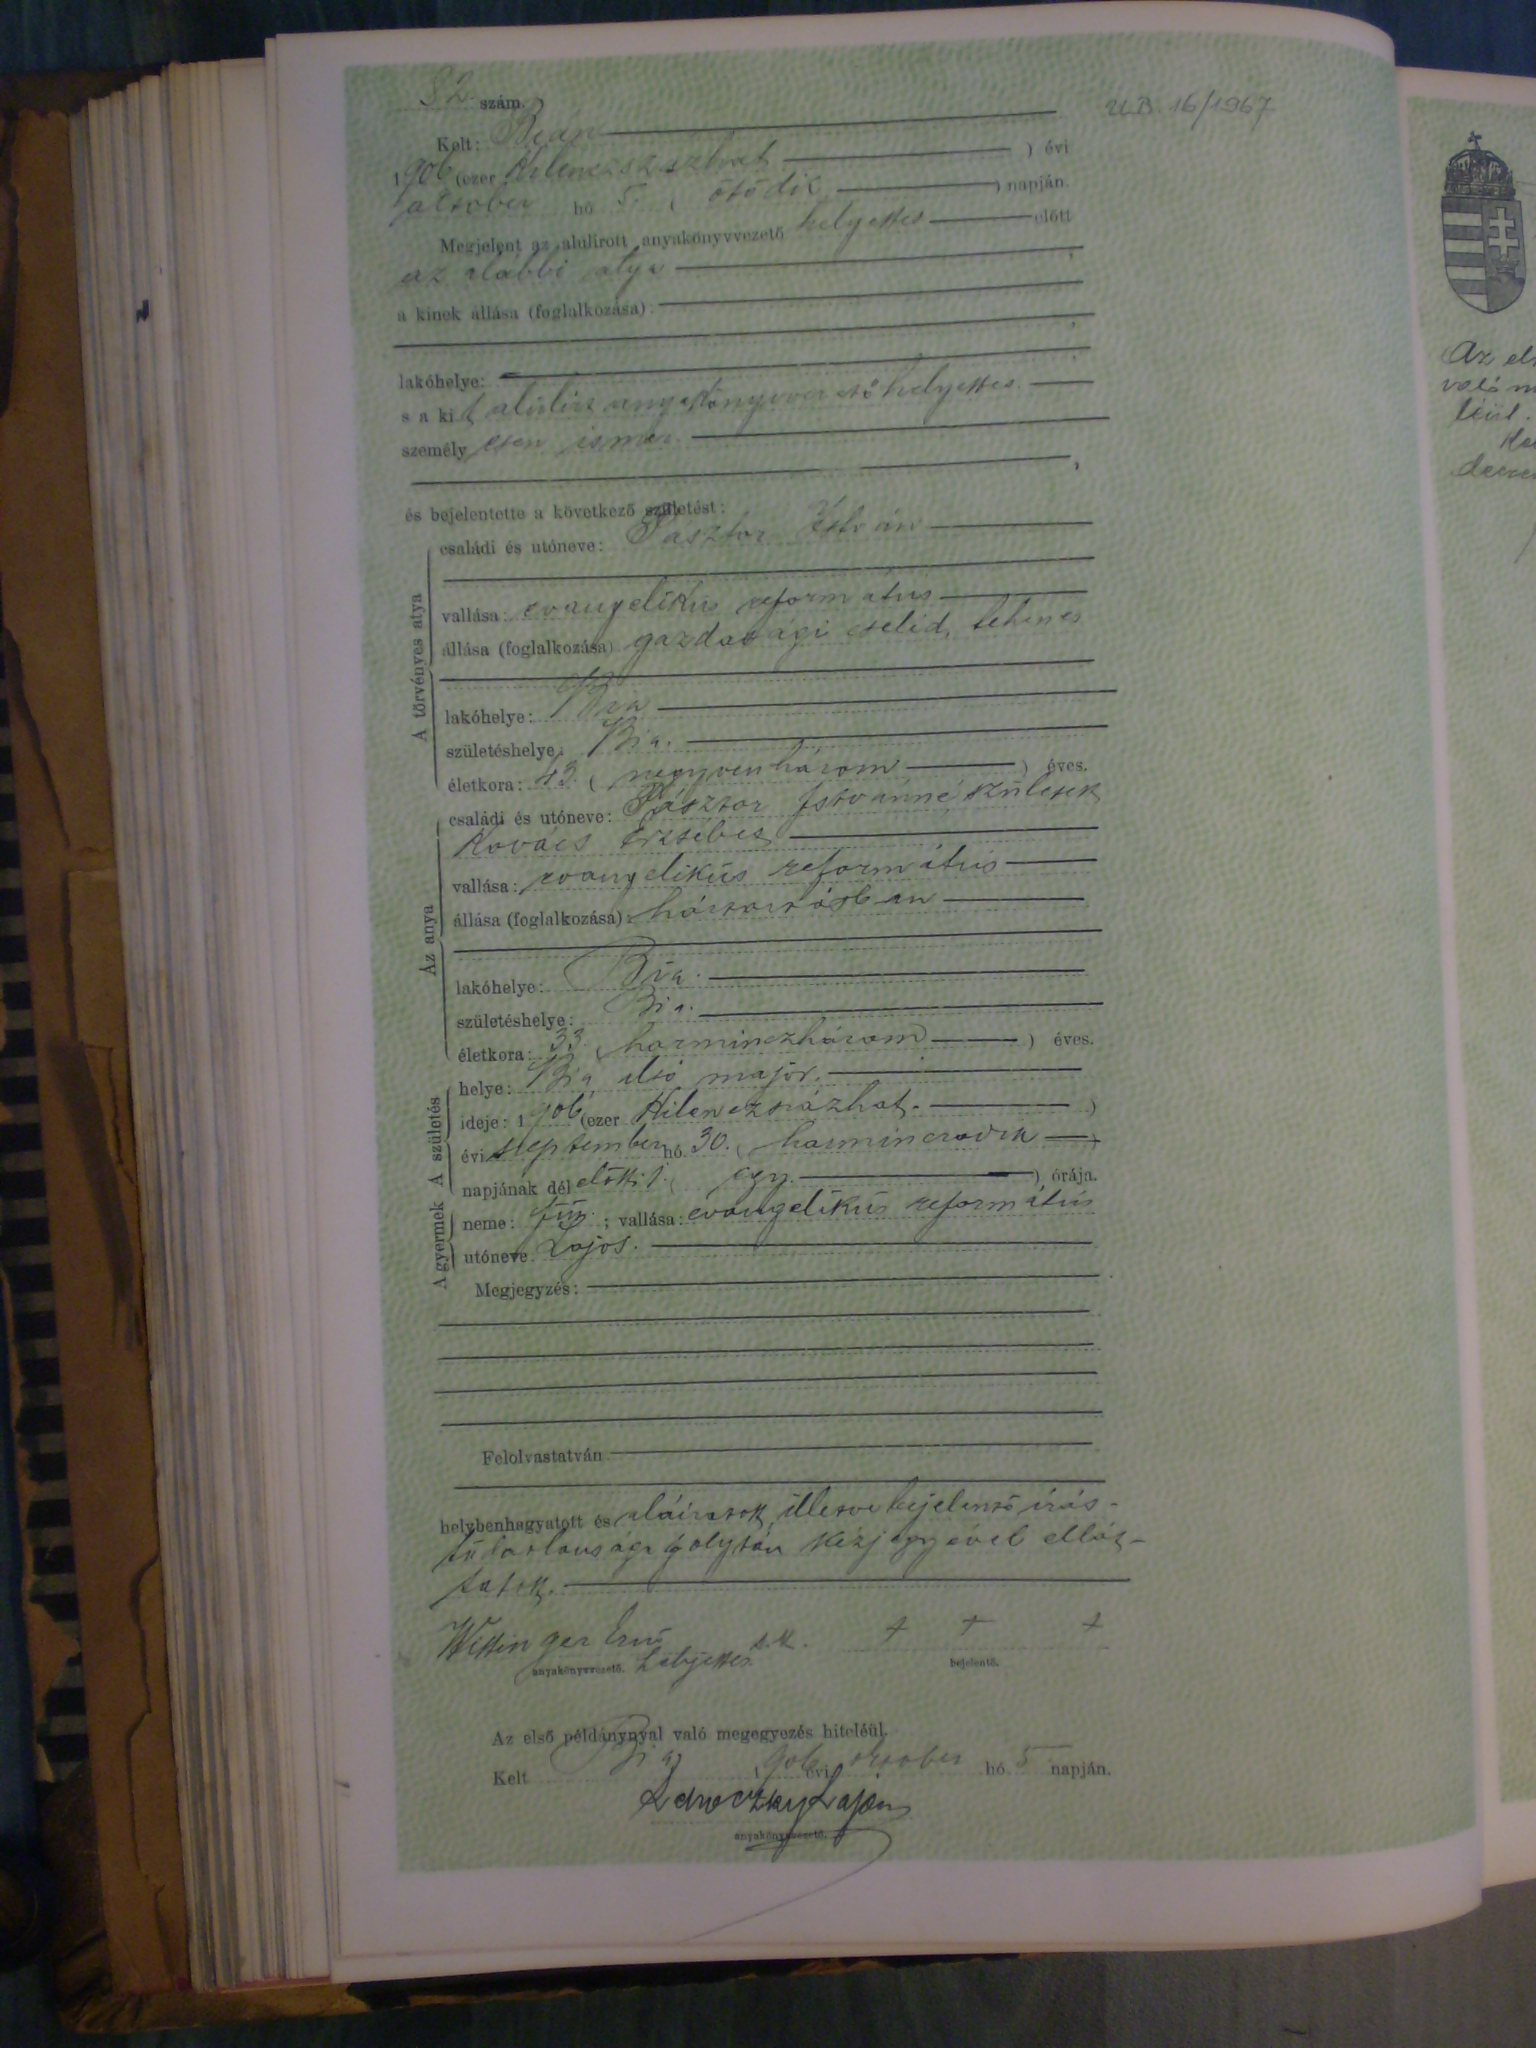 82 szám.
U.B. 16/1967
Kelt: Bián
1906 (ezer kilenczszázhat) évi
október hó 5. (ötödik) napján.
Megjelent az alulírott anyakönyvvezető helyettes előtt
az alábbi atya
a kinek állása (foglalkozása):
lakóhelye:
s a kit alulírt anyakönyvvezetőhelyettes
személyesen ismer.
és bejelentette a következő születést:
A törvényes atya
családi és utóneve: Pásztor István
vallása: evangelikus református
állása (foglalkozása) gazdasági cseléd, tehenes
lakóhelye: Bia
születéshelye: Bia.
életkora: 43. (negyvenhárom) éves.
Az anya
családi és utóneve: Pásztor Istvánné született
Kovács Erzsébet
vallása: evangelikus református
állása (foglalkozása): háztartásban
lakóhelye: Bia.
születéshelye: Bia.
életkora: 33. (harminczhárom) éves.
A születés
helye: Bia alsó major.
ideje: 1906 (ezer kilenczszázhat.)
évi september hó 30. (harminczadik)
napjának dél előtti 1. (egy.) órája.
A gyermek
neme: fiú. ; vallása: evangelikus református
utóneve Lajos.
Megjegyzés:
Felolvastatván
helybenhagyatott és aláíratott, illetve bejelentő írás-
tudatlansága folytán kézjegyével ellát-
tatott.
Wittinger Ernő s.k. + + +
anyakönyvvezető. helyettes. bejelentő.
Az első példánynyal való megegyezés hiteléül.
Kelt Bia, 1906 évi október hó 5 napján.
Lajos
anyakönyvvezető.
Az el
való m
léül.